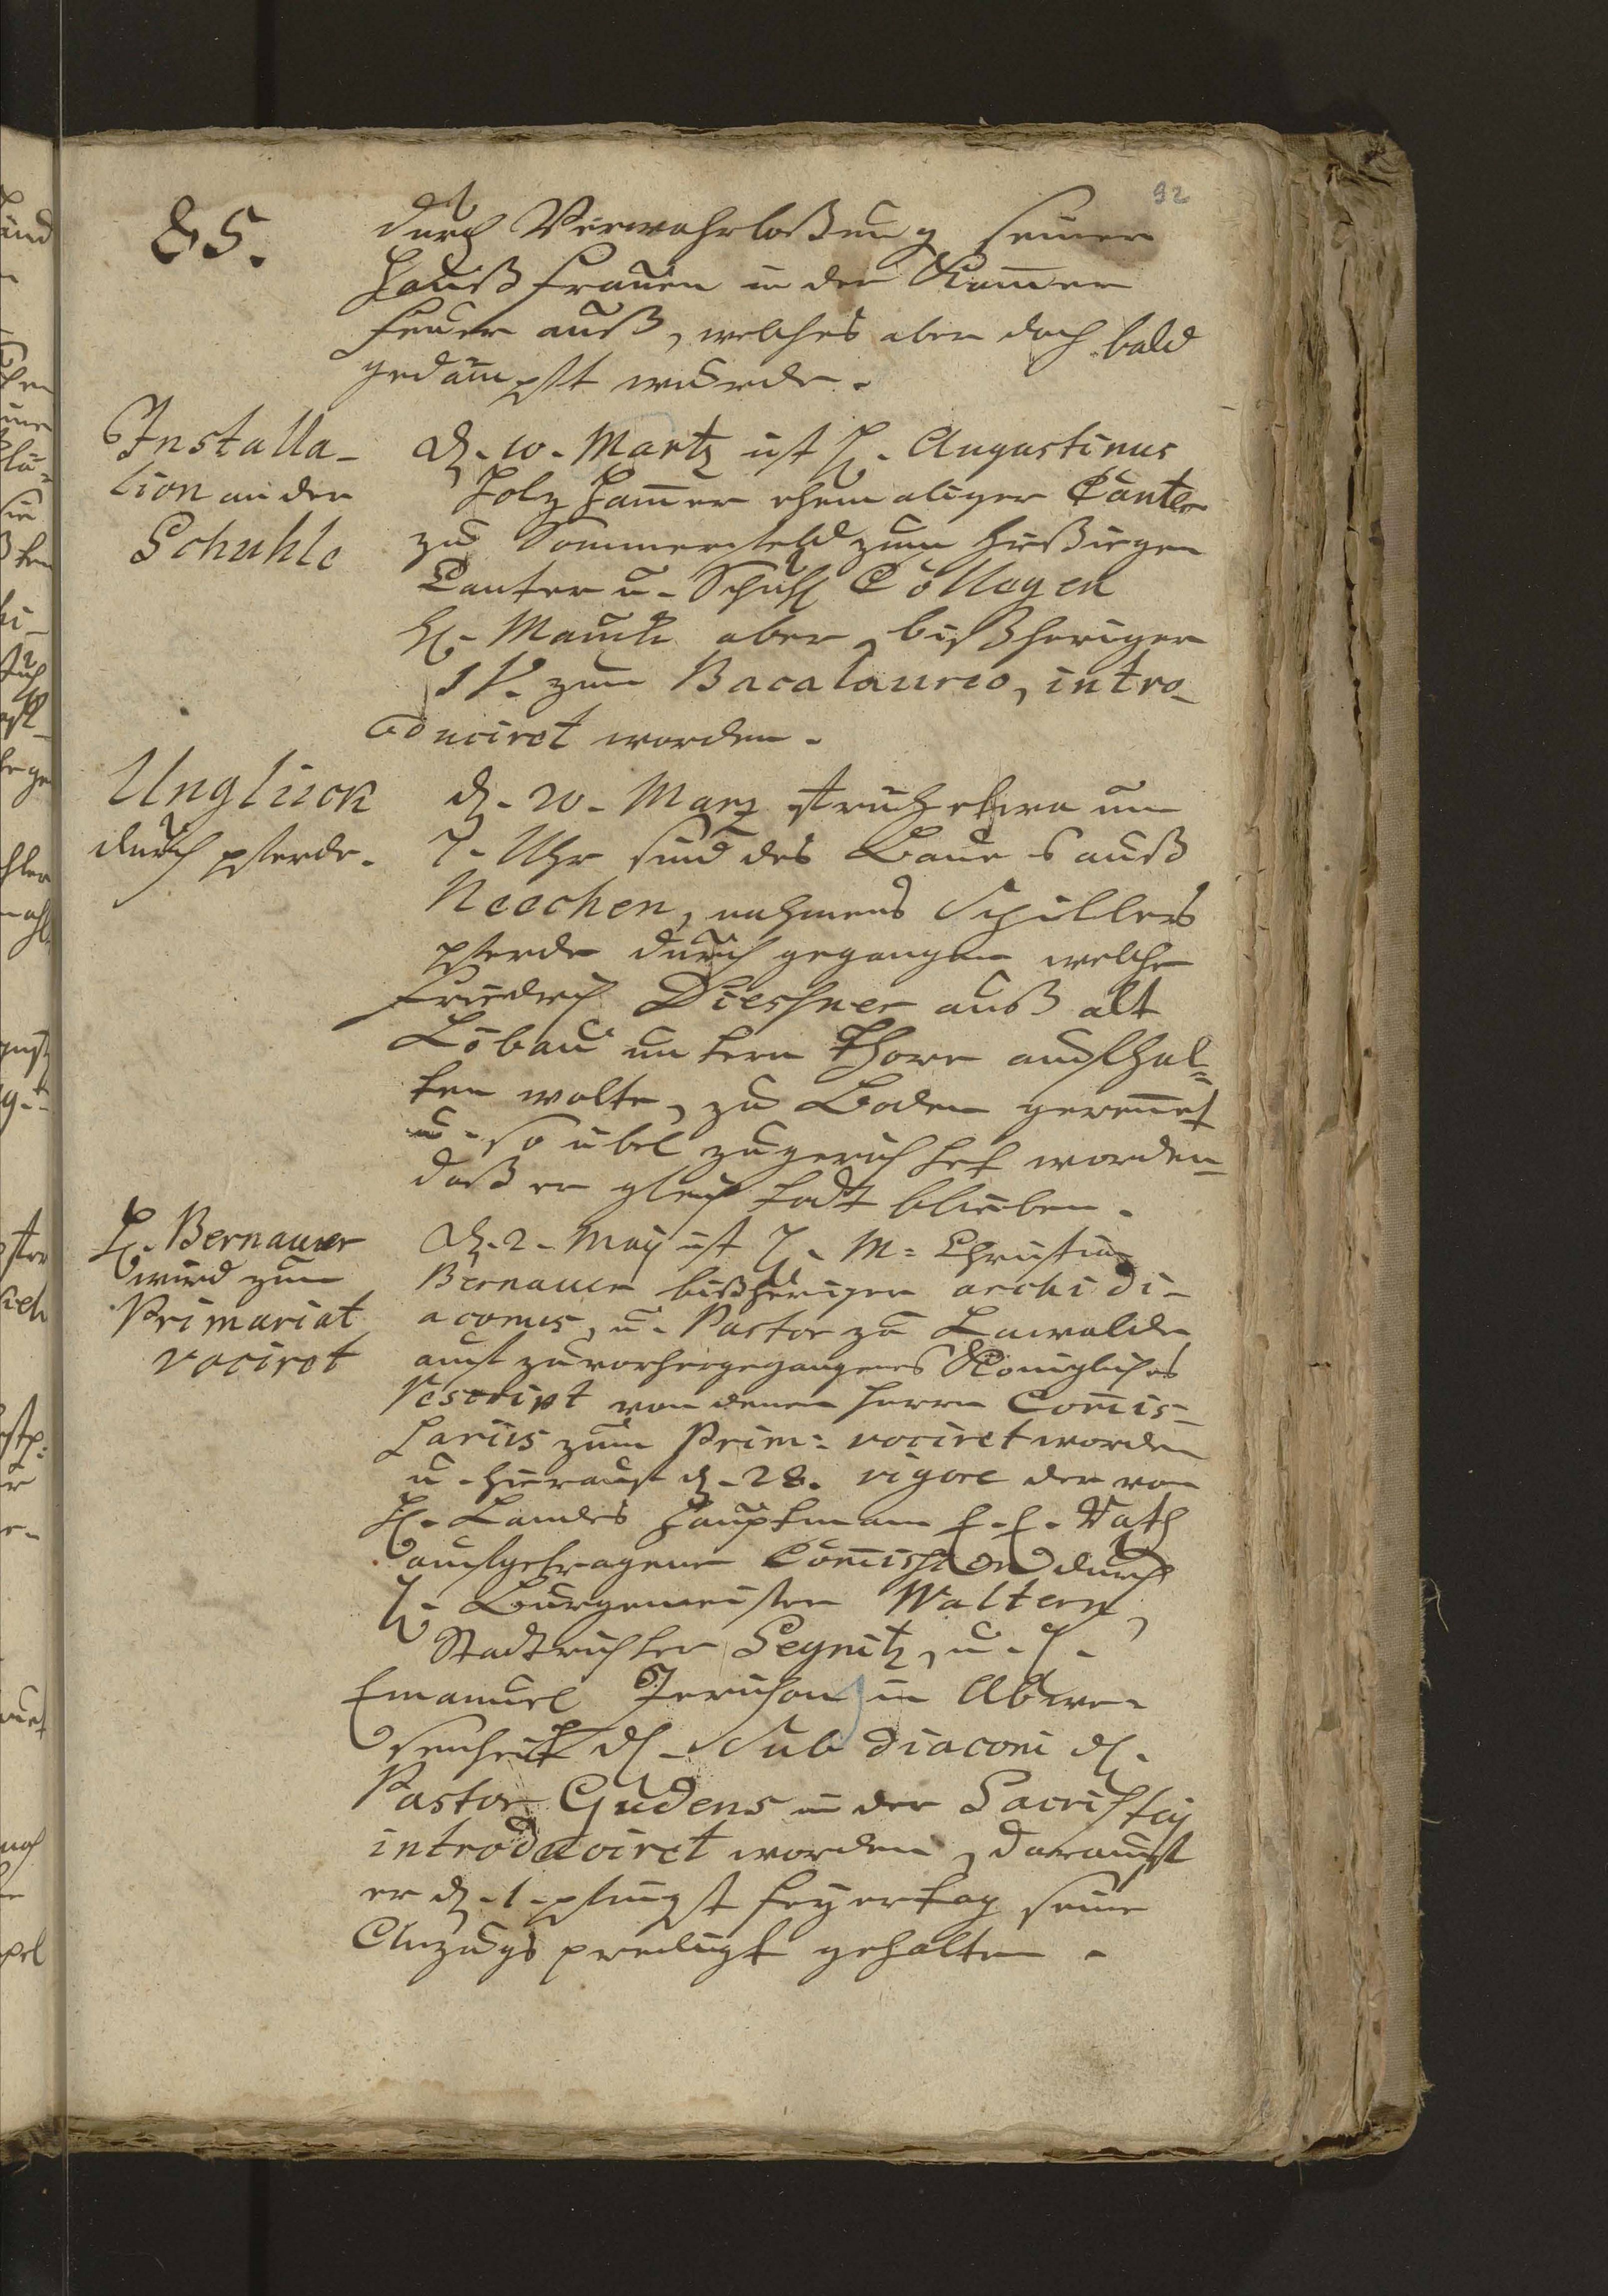 92
85.
durch Verwahrloßung seiner
Haußfrauen in der Kammer
Feuer auß, welches aber doch bald
gedämpfft wurde.
Installa-
tion an der
Schuhle
d. 10. Martz ist H. Augustinus
Holzhamer ehemaliger Cantor
zu Sommerfeld zum hießigen
Cantor u. Schuhl Collegen
H. Mauth aber, bißheriger
IV. zum Bacalaureo, intro-
duciret worden.
Unglück
durch pferde.
d. 20. Marz früh etwa um
7. Uhr sind des Bauers auß
Neechen, nahmens Schillers
pferde durch gegangen welche
Friedrich Dieshner auß alt
Löbau untern Thore aufhal=
ten wolte, zu Boden gerennet
u. so übel zugerichtet worden
daß er gleich todt blieben.
H. Bernauer
wird zum
Primariat
vociret
d. 2. Maij ist H. M: Christian
Bernauer bißheriger archidi-
aconus, u. Pastor zu Lawalde
auf zuvorhergegangenes Königliches
Rescript von denen Herrn Commis-
sariis zum Prim: vociret worden
u. hierauf d. 28. vigore der von
H. Landes Hauptmann E. E. Rath
aufgetragenen Commission durch
H. Burgemeister Waltern,
Stadtrichter Segnitz, u. H.
Emanuel Jerichow in Abwe-
senheit H. Subdiaconi H.
Pastor Gudens in der Sacristey
introduciret worden, darauf
er d. 1. pfingst feyertag seine
Anzugs predigt gehalten.